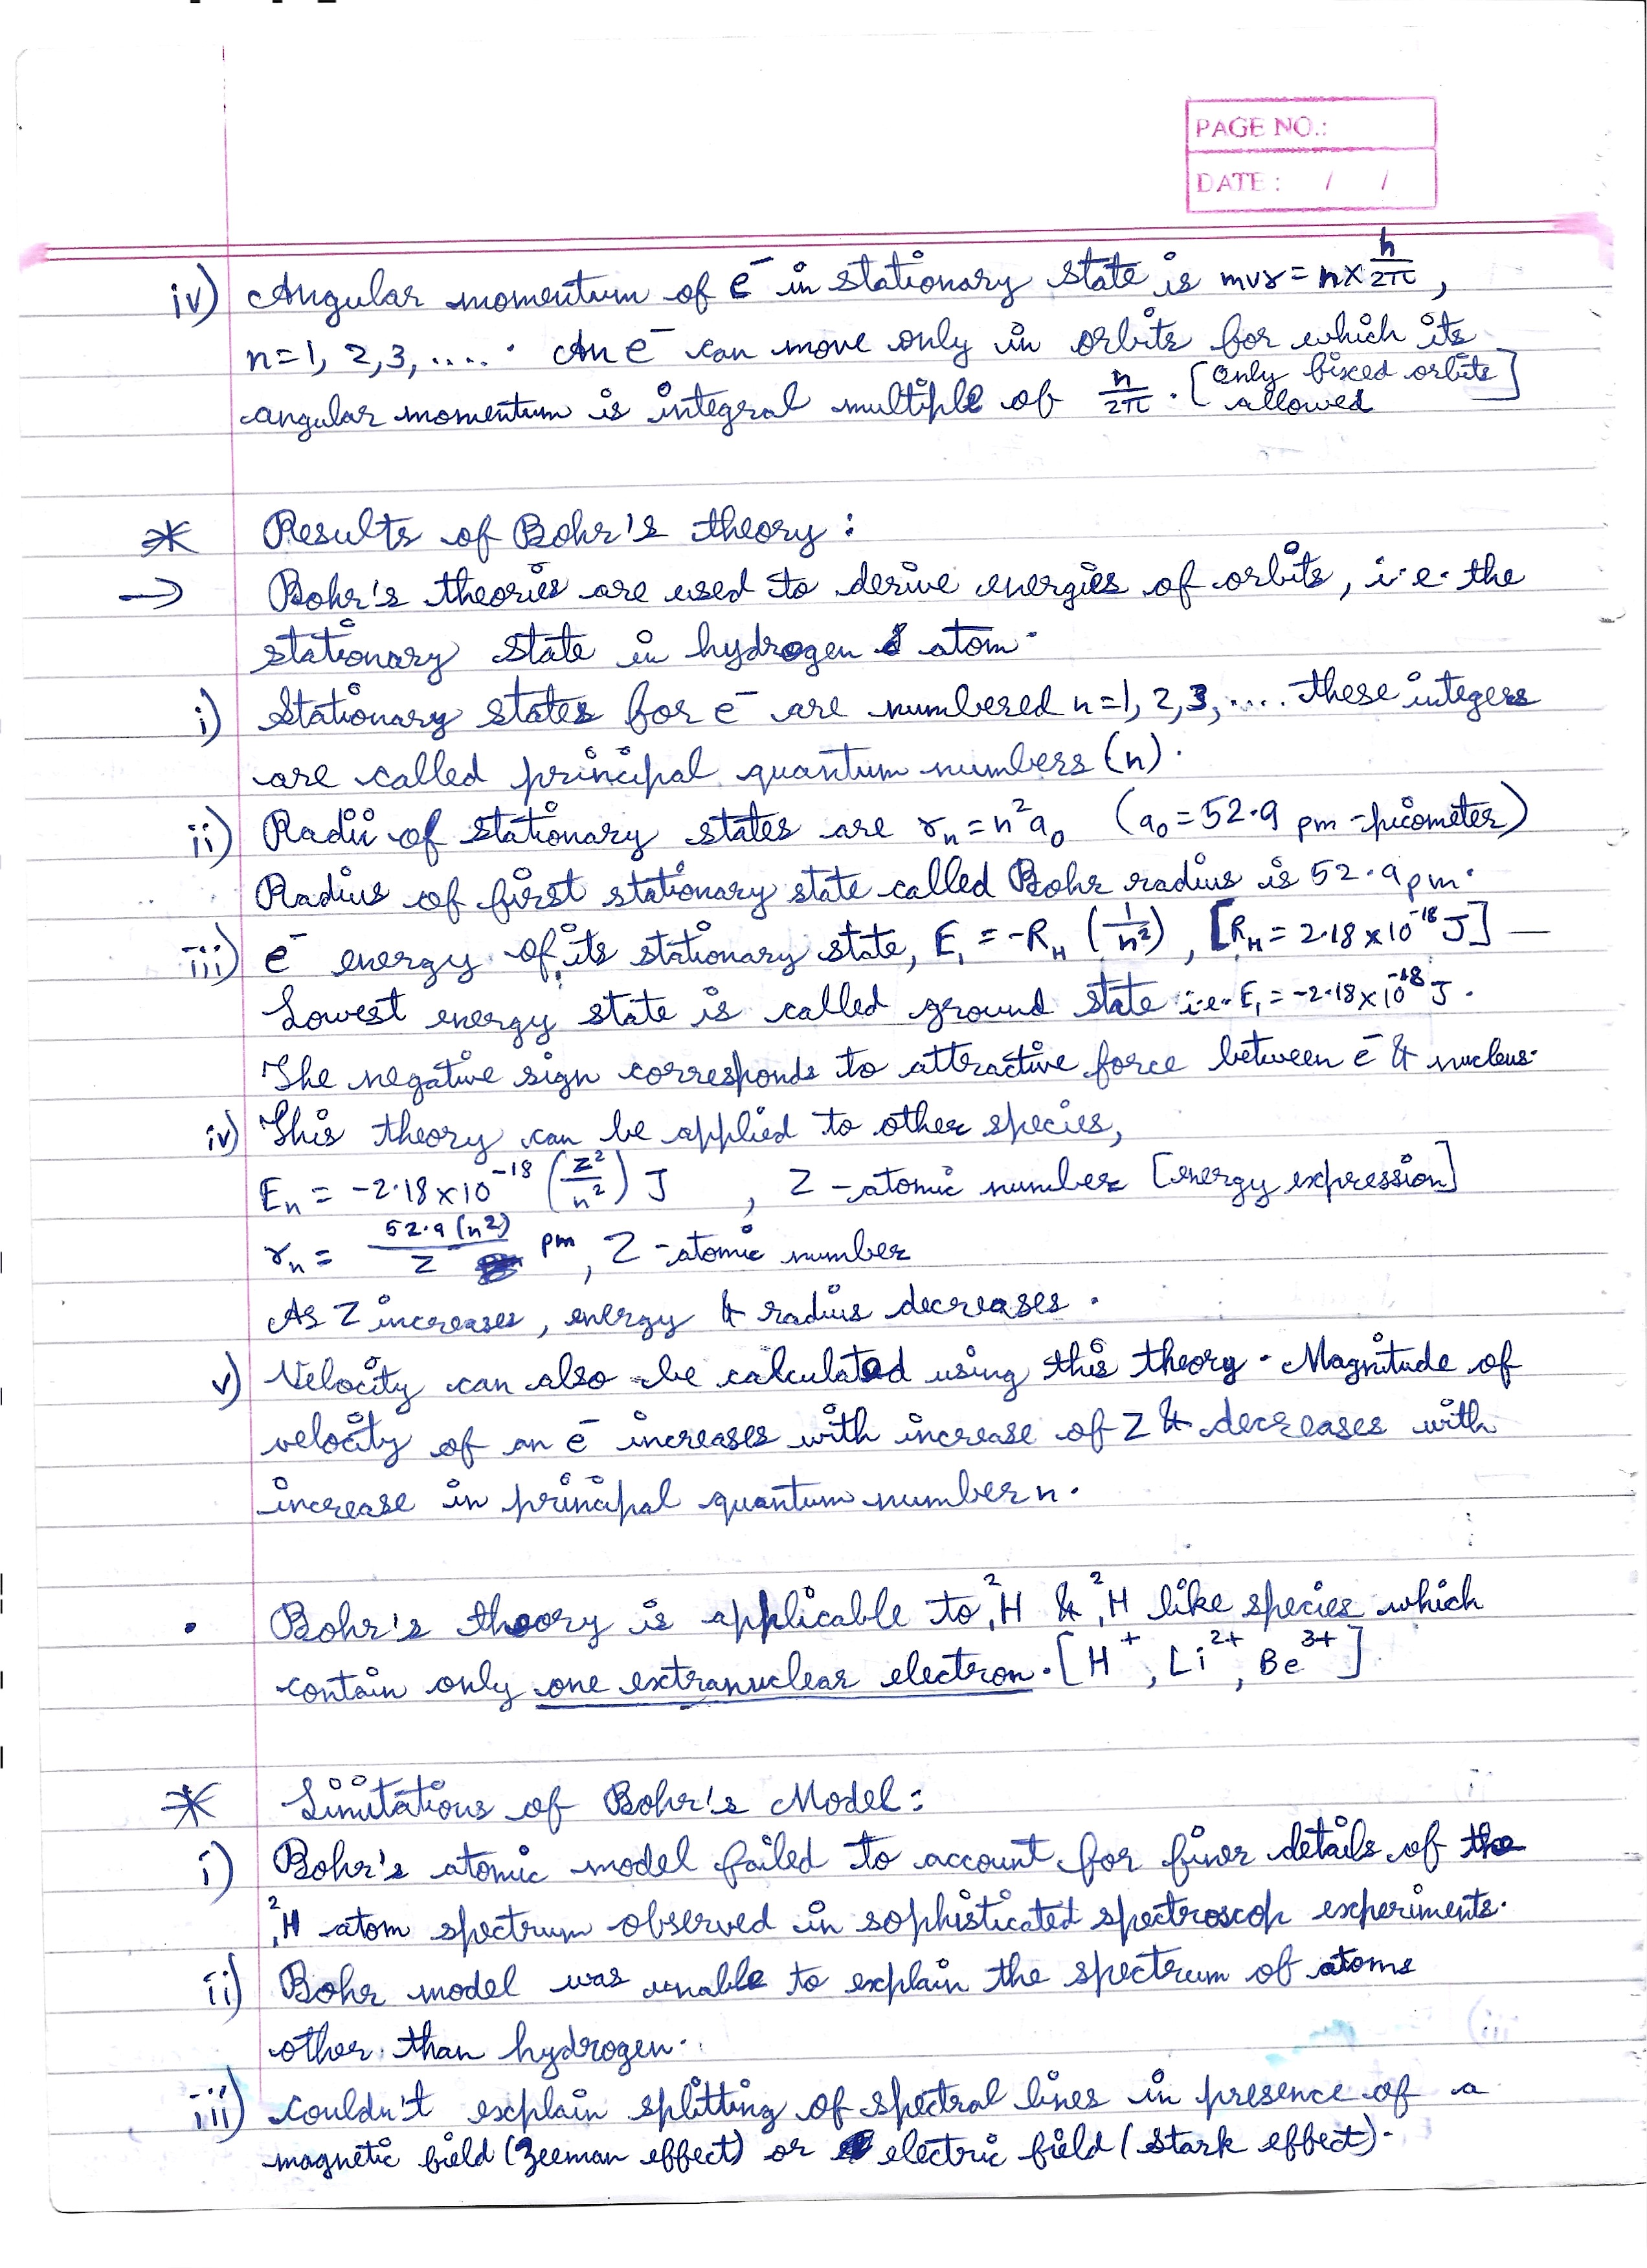 PAGE NO.:
DATE : / /
iv) Angular momentum of e⁻ in stationary state is mvr = n × h/2π ,
n=1, 2,3, ..... . An e⁻ can move only in orbits for which its
angular momentum is integral multiple of h/2π . [Only fixed orbits allowed]
* Results of Bohr's theory :
→ Bohr's theories are used to derive energies of orbits, i.e. the
stationary state in hydrogen atom.
i) Stationary states for e⁻ are numbered n=1, 2,3, .... these integers
are called principal quantum numbers (n).
ii) Radii of stationary states are rₙ = n²a₀ (a₀ = 52.9 pm - picometer)
Radius of first stationary state called Bohr radius is 52.9pm.
iii) e⁻ energy of its stationary state, E₁ = -R_H (1/n²) , [R_H = 2.18 × 10⁻¹⁸ J] —
Lowest energy state is called ground state i.e. E₁ = -2.18 × 10⁻¹⁸ J .
The negative sign corresponds to attractive force between e⁻ & nucleus.
iv) This theory can be applied to other species,
Eₙ = -2.18 × 10⁻¹⁸ (Z²/n²) J , Z - atomic number [energy expression]
rₙ = 52.9 (n²)/Z pm , Z - atomic number
As Z increases, energy & radius decreases .
v) Velocity can also be calculated using this theory . Magnitude of
velocity of an e⁻ increases with increase of Z & decreases with
increase in principal quantum number n.
• Bohr's theory is applicable to ²₁H & ²₁H like species which
contain only one extranuclear electron . [H⁺, Li²⁺, Be³⁺]
* Limitations of Bohr's Model :
i) Bohr's atomic model failed to account for finer details of the
²₁H atom spectrum observed in sophisticated spectroscop experiments.
ii) Bohr model was unable to explain the spectrum of atoms
other than hydrogen.
iii) couldn't explain splitting of spectral lines in presence of a
magnetic field (Zeeman effect) or electric field (Stark effect).